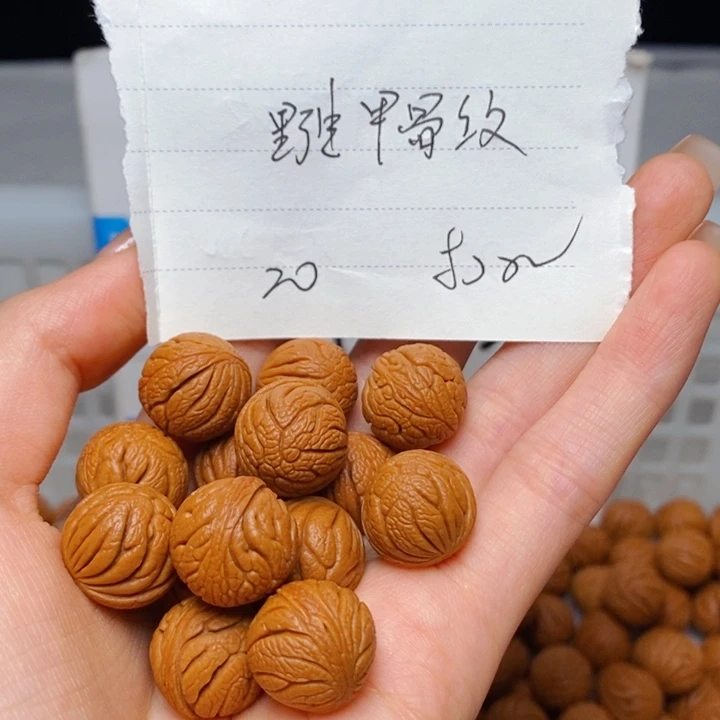 野生甲骨纹
20 打孔